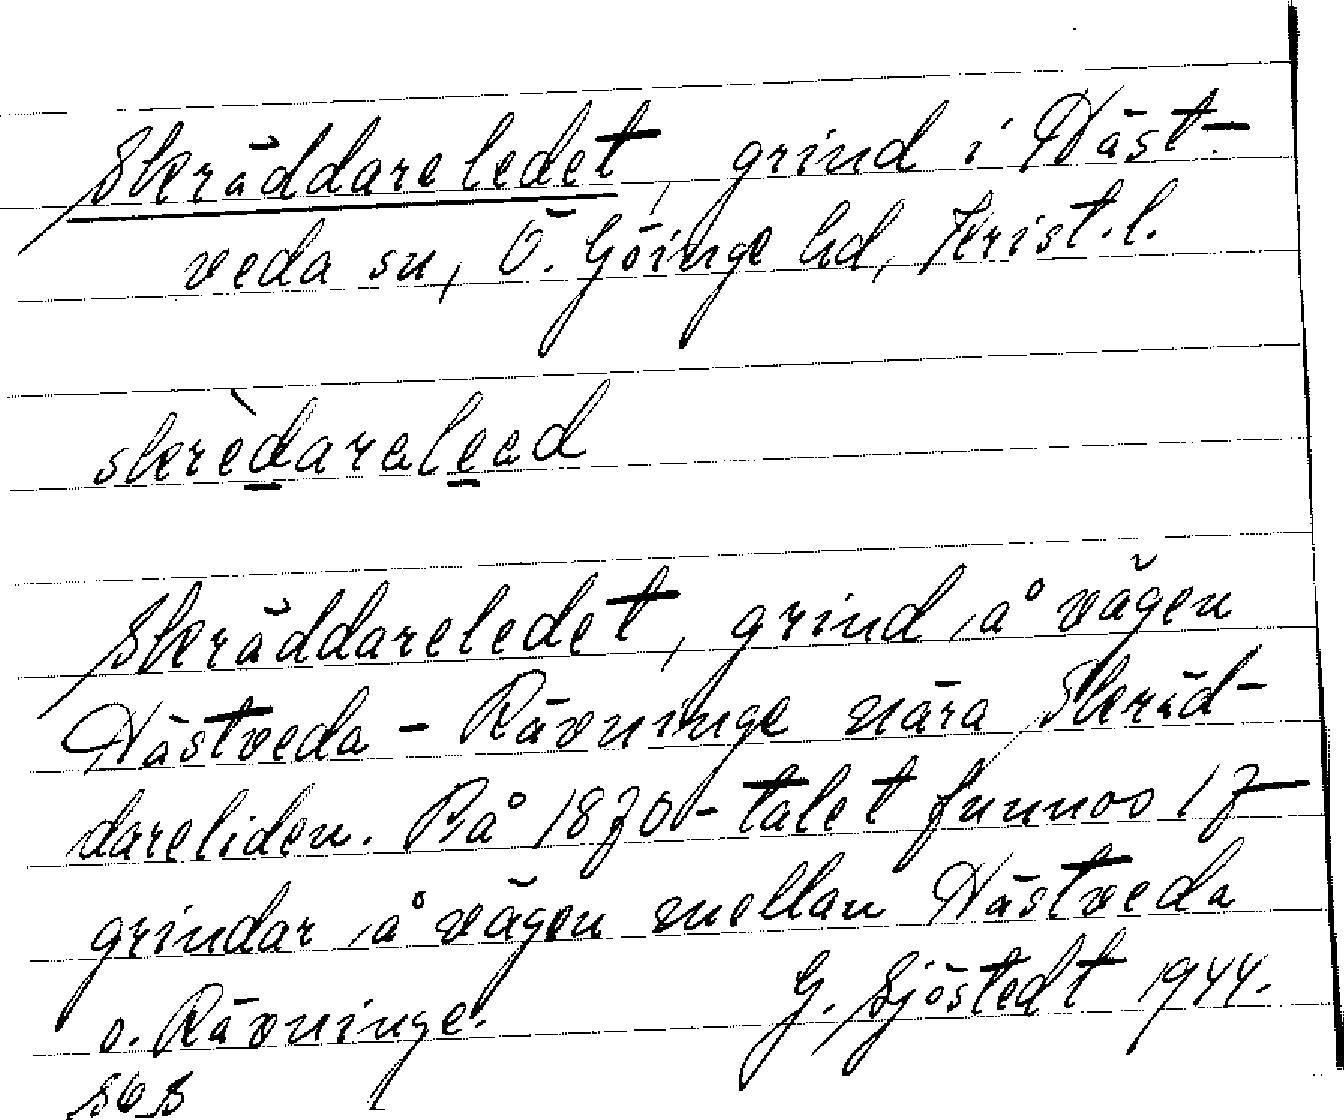 Skräddareledet, grind i Häst-
veda sn, Ö. Göinge hd, Krist.l.
skrèdaraleed
Skräddareledet, grind å vägen
Hästveda - Rävninge nära Skräd-
dareliden. På 1870-talet funnos 17
grindar å vägen mellan Hästveda
o. Rävninge. G. Sjöstedt 1944.